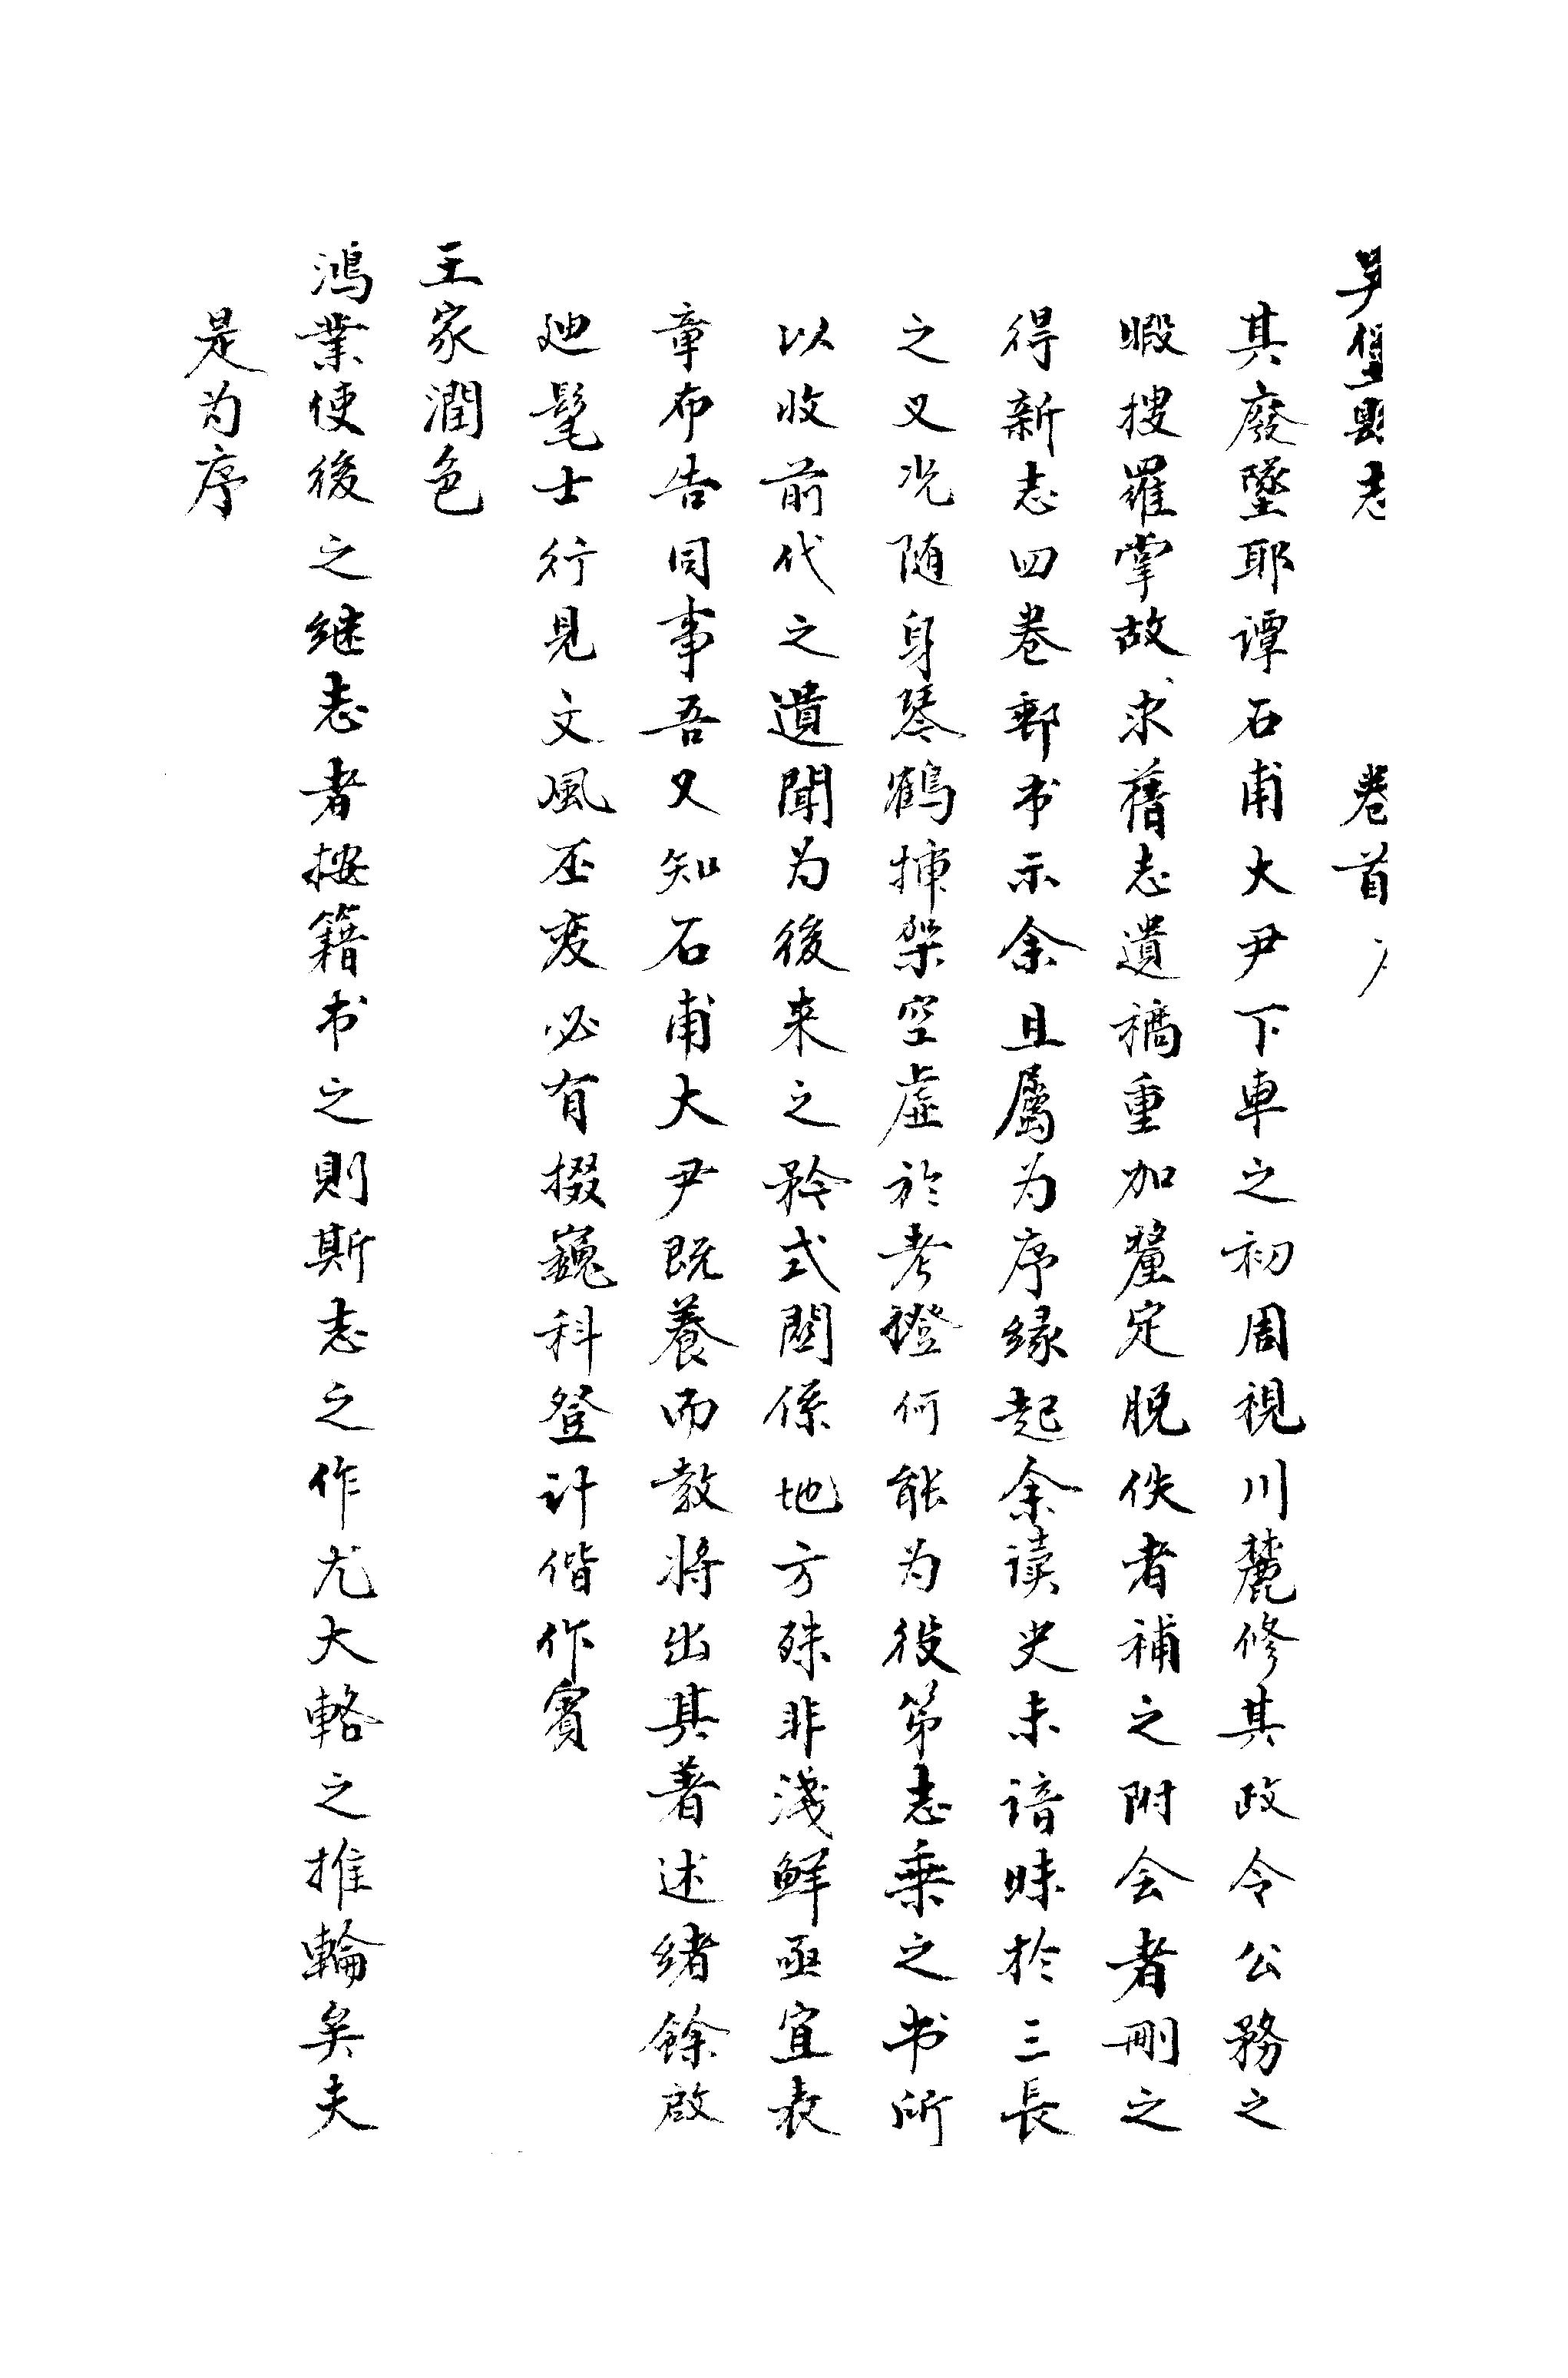 吴堡縣志 卷首
其廢墜耶譚石甫大尹下車之初周視川麓修其政令公務之
暇搜羅掌故求舊志遺稿重加釐定脱佚者補之附会者刪之
得新志四卷郵书示余且屬为序緣起余读史未谙昧於三長
之义况随身琴鶴揷架空虚於考證何能为役第志乗之书所
以收前代之遺聞为後来之矜式關係地方殊非淺鮮亟宜表
章布告同事吾又知石甫大尹既養而教将出其著述绪餘啟
廸髦士行見文風丕变必有掇巍科登计偕作賓
王家潤色
鴻業使後之继志者按籍书之則斯志之作尤大輅之推輪矣夫
是为序